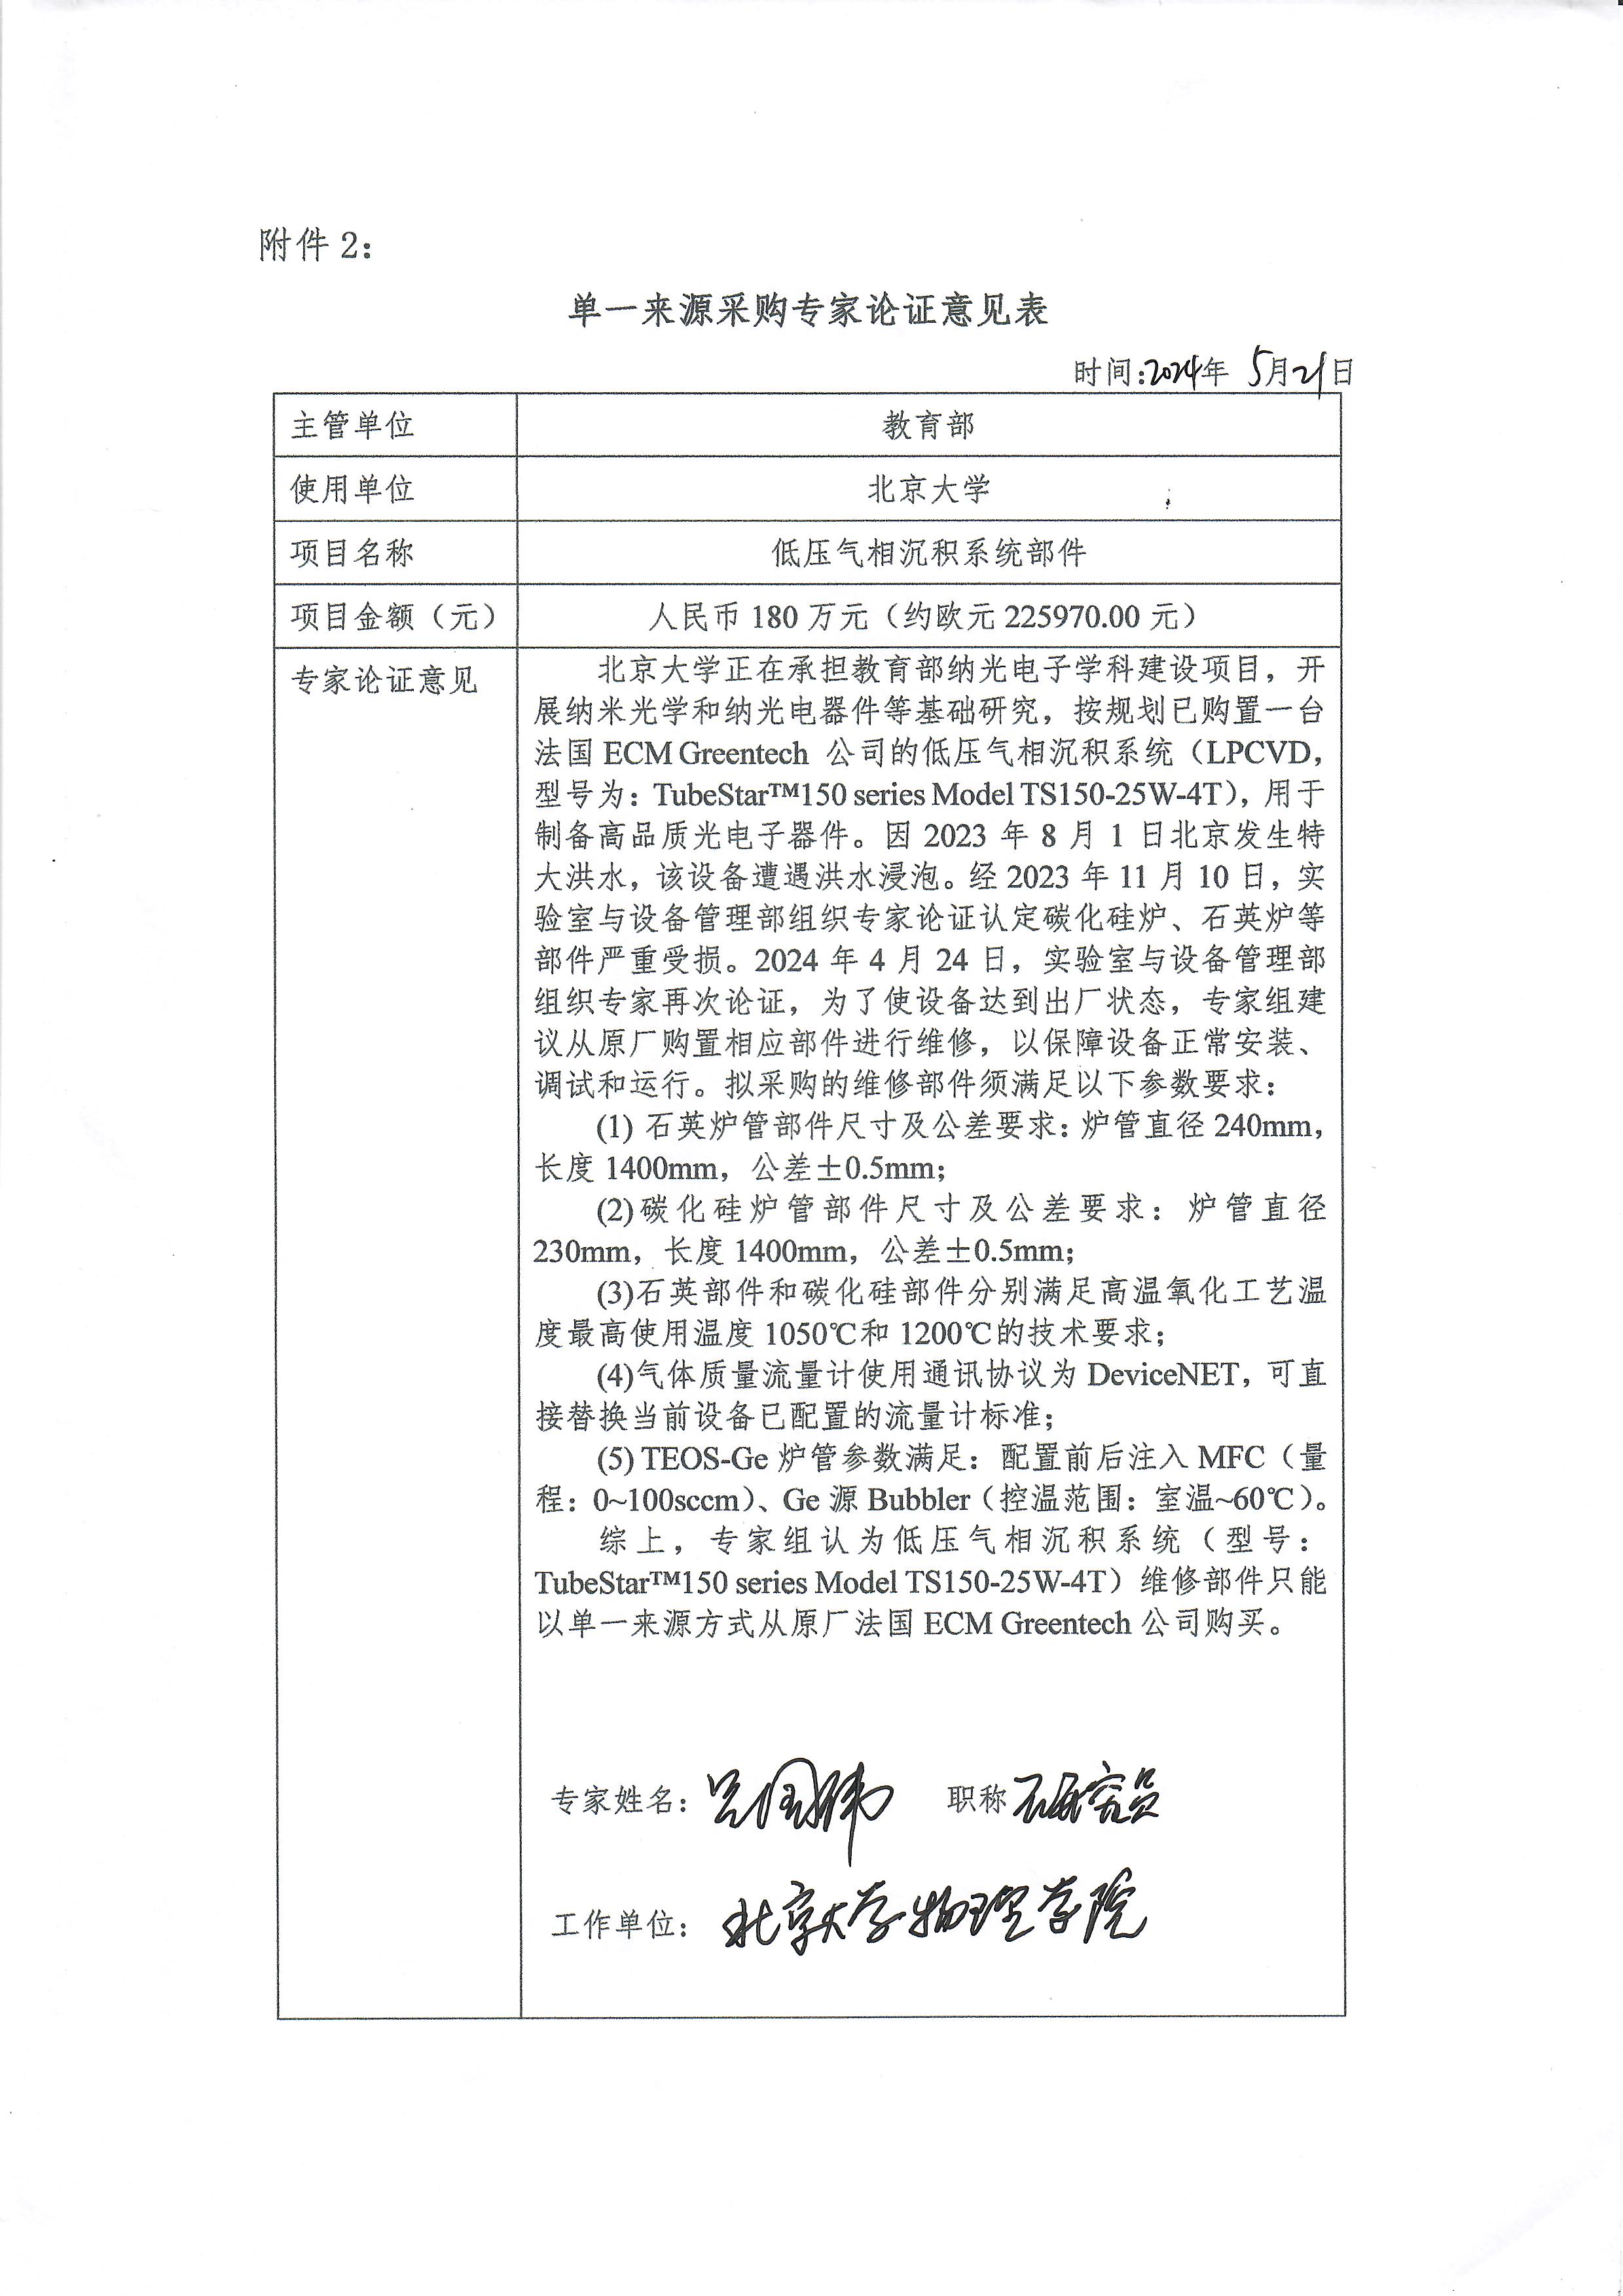 附件 2：
单一来源采购专家论证意见表
时间：2024年 5月21日
主管单位 教育部
使用单位 北京大学
项目名称 低压气相沉积系统部件
项目金额（元） 人民币 180 万元（约欧元 225970.00 元）
专家论证意见
北京大学正在承担教育部纳光电子学科建设项目，开
展纳米光学和纳光电器件等基础研究，按规划已购置一台
法国 ECM Greentech 公司的低压气相沉积系统（LPCVD，
型号为：TubeStar™150 series Model TS150-25W-4T），用于
制备高品质光电子器件。因 2023 年 8 月 1 日北京发生特
大洪水，该设备遭遇洪水浸泡。经 2023 年 11 月 10 日，实
验室与设备管理部组织专家论证认定碳化硅炉、石英炉等
部件严重受损。2024 年 4 月 24 日，实验室与设备管理部
组织专家再次论证，为了使设备达到出厂状态，专家组建
议从原厂购置相应部件进行维修，以保障设备正常安装、
调试和运行。拟采购的维修部件须满足以下参数要求：
(1) 石英炉管部件尺寸及公差要求：炉管直径 240mm，
长度 1400mm，公差±0.5mm；
(2)碳化硅炉管部件尺寸及公差要求：炉管直径
230mm，长度 1400mm，公差±0.5mm；
(3)石英部件和碳化硅部件分别满足高温氧化工艺温
度最高使用温度 1050℃和 1200℃的技术要求；
(4)气体质量流量计使用通讯协议为 DeviceNET，可直
接替换当前设备已配置的流量计标准；
(5) TEOS-Ge 炉管参数满足：配置前后注入 MFC（量
程：0~100sccm）、Ge 源 Bubbler（控温范围：室温~60℃）。
综上，专家组认为低压气相沉积系统（型号：
TubeStar™150 series Model TS150-25W-4T）维修部件只能
以单一来源方式从原厂法国 ECM Greentech 公司购买。
专家姓名：吕国伟 职称 研究员
工作单位：北京大学物理学院